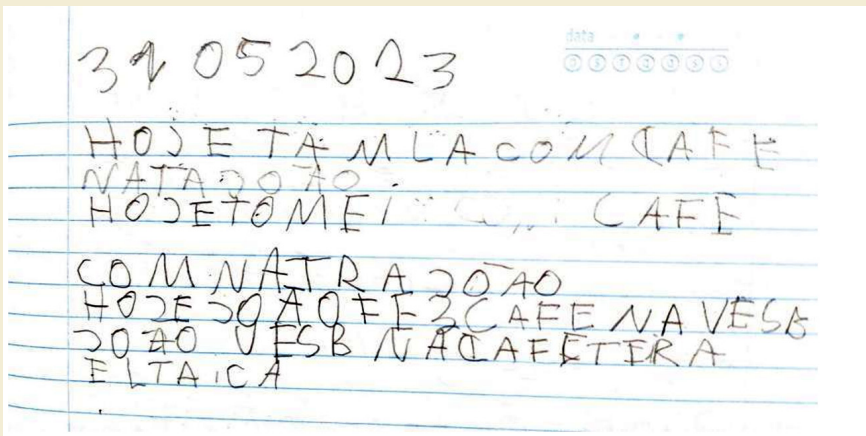 31 05 2023
data
D S T Q Q S S
HOJE TA MLA COM CAFE
NATA JOÃO
HOJE TOMEI COM CAFE
COM NATRA JOÃO
HOJE JOÃO FE3 CAFE NA VESB
JOÃO VESB NA CAFETERA
ELTAICA